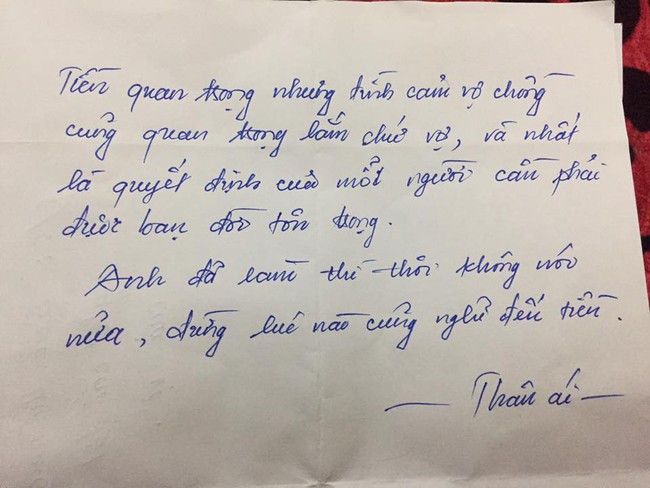 Tiền quan trọng nhưng tình cảm vợ chồng
cũng quan trọng lắm chứ vợ, và nhất
là quyết định của mổi người cần phải
được bạn đời tôn trọng.
Anh đã làm thì thôi không nói
nửa, đừng lúc nào cũng nghỉ đến tiền.
— Thân ái —